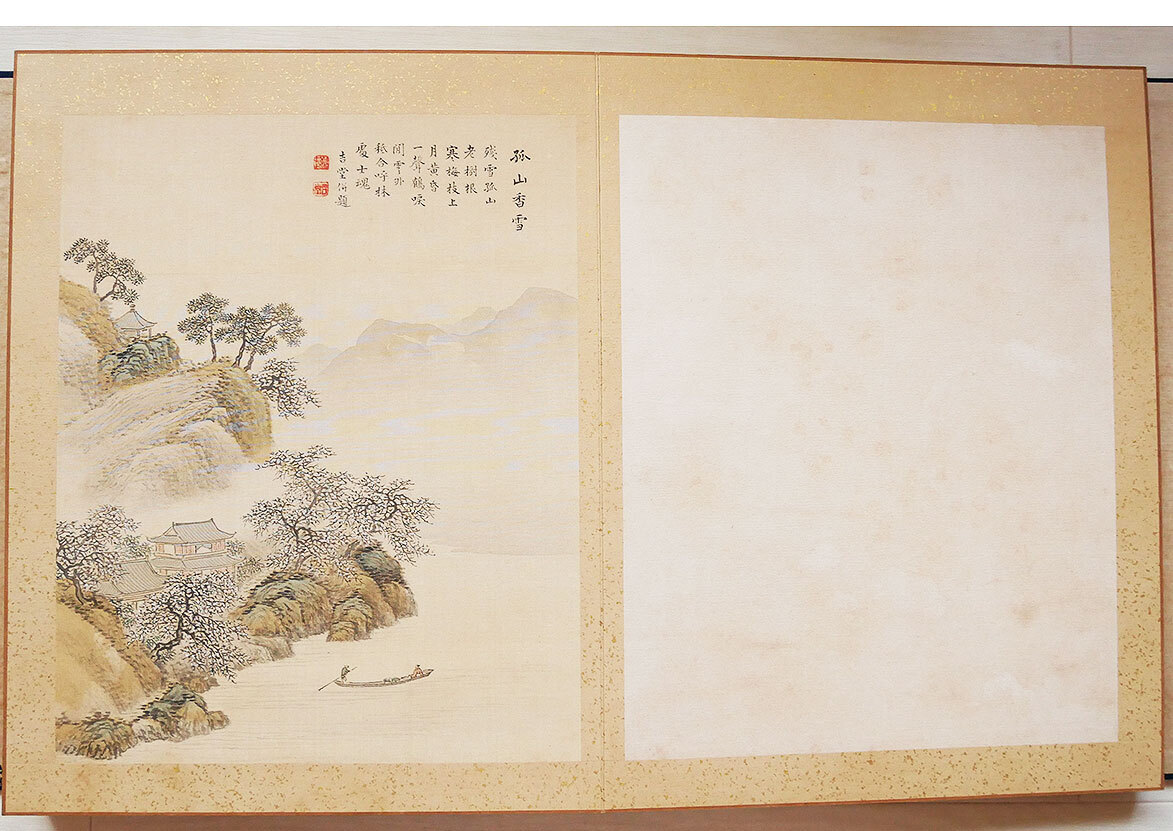 孤山香雪
残雪孤山
老樹根
寒梅枝上
月黄昏
一聲鶴唳
閒雲外
秪合呼林
處士魂
吉堂併題